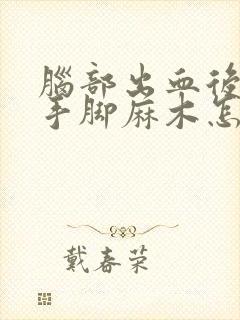 腦部出血後
手脚麻木怎
戴春荣